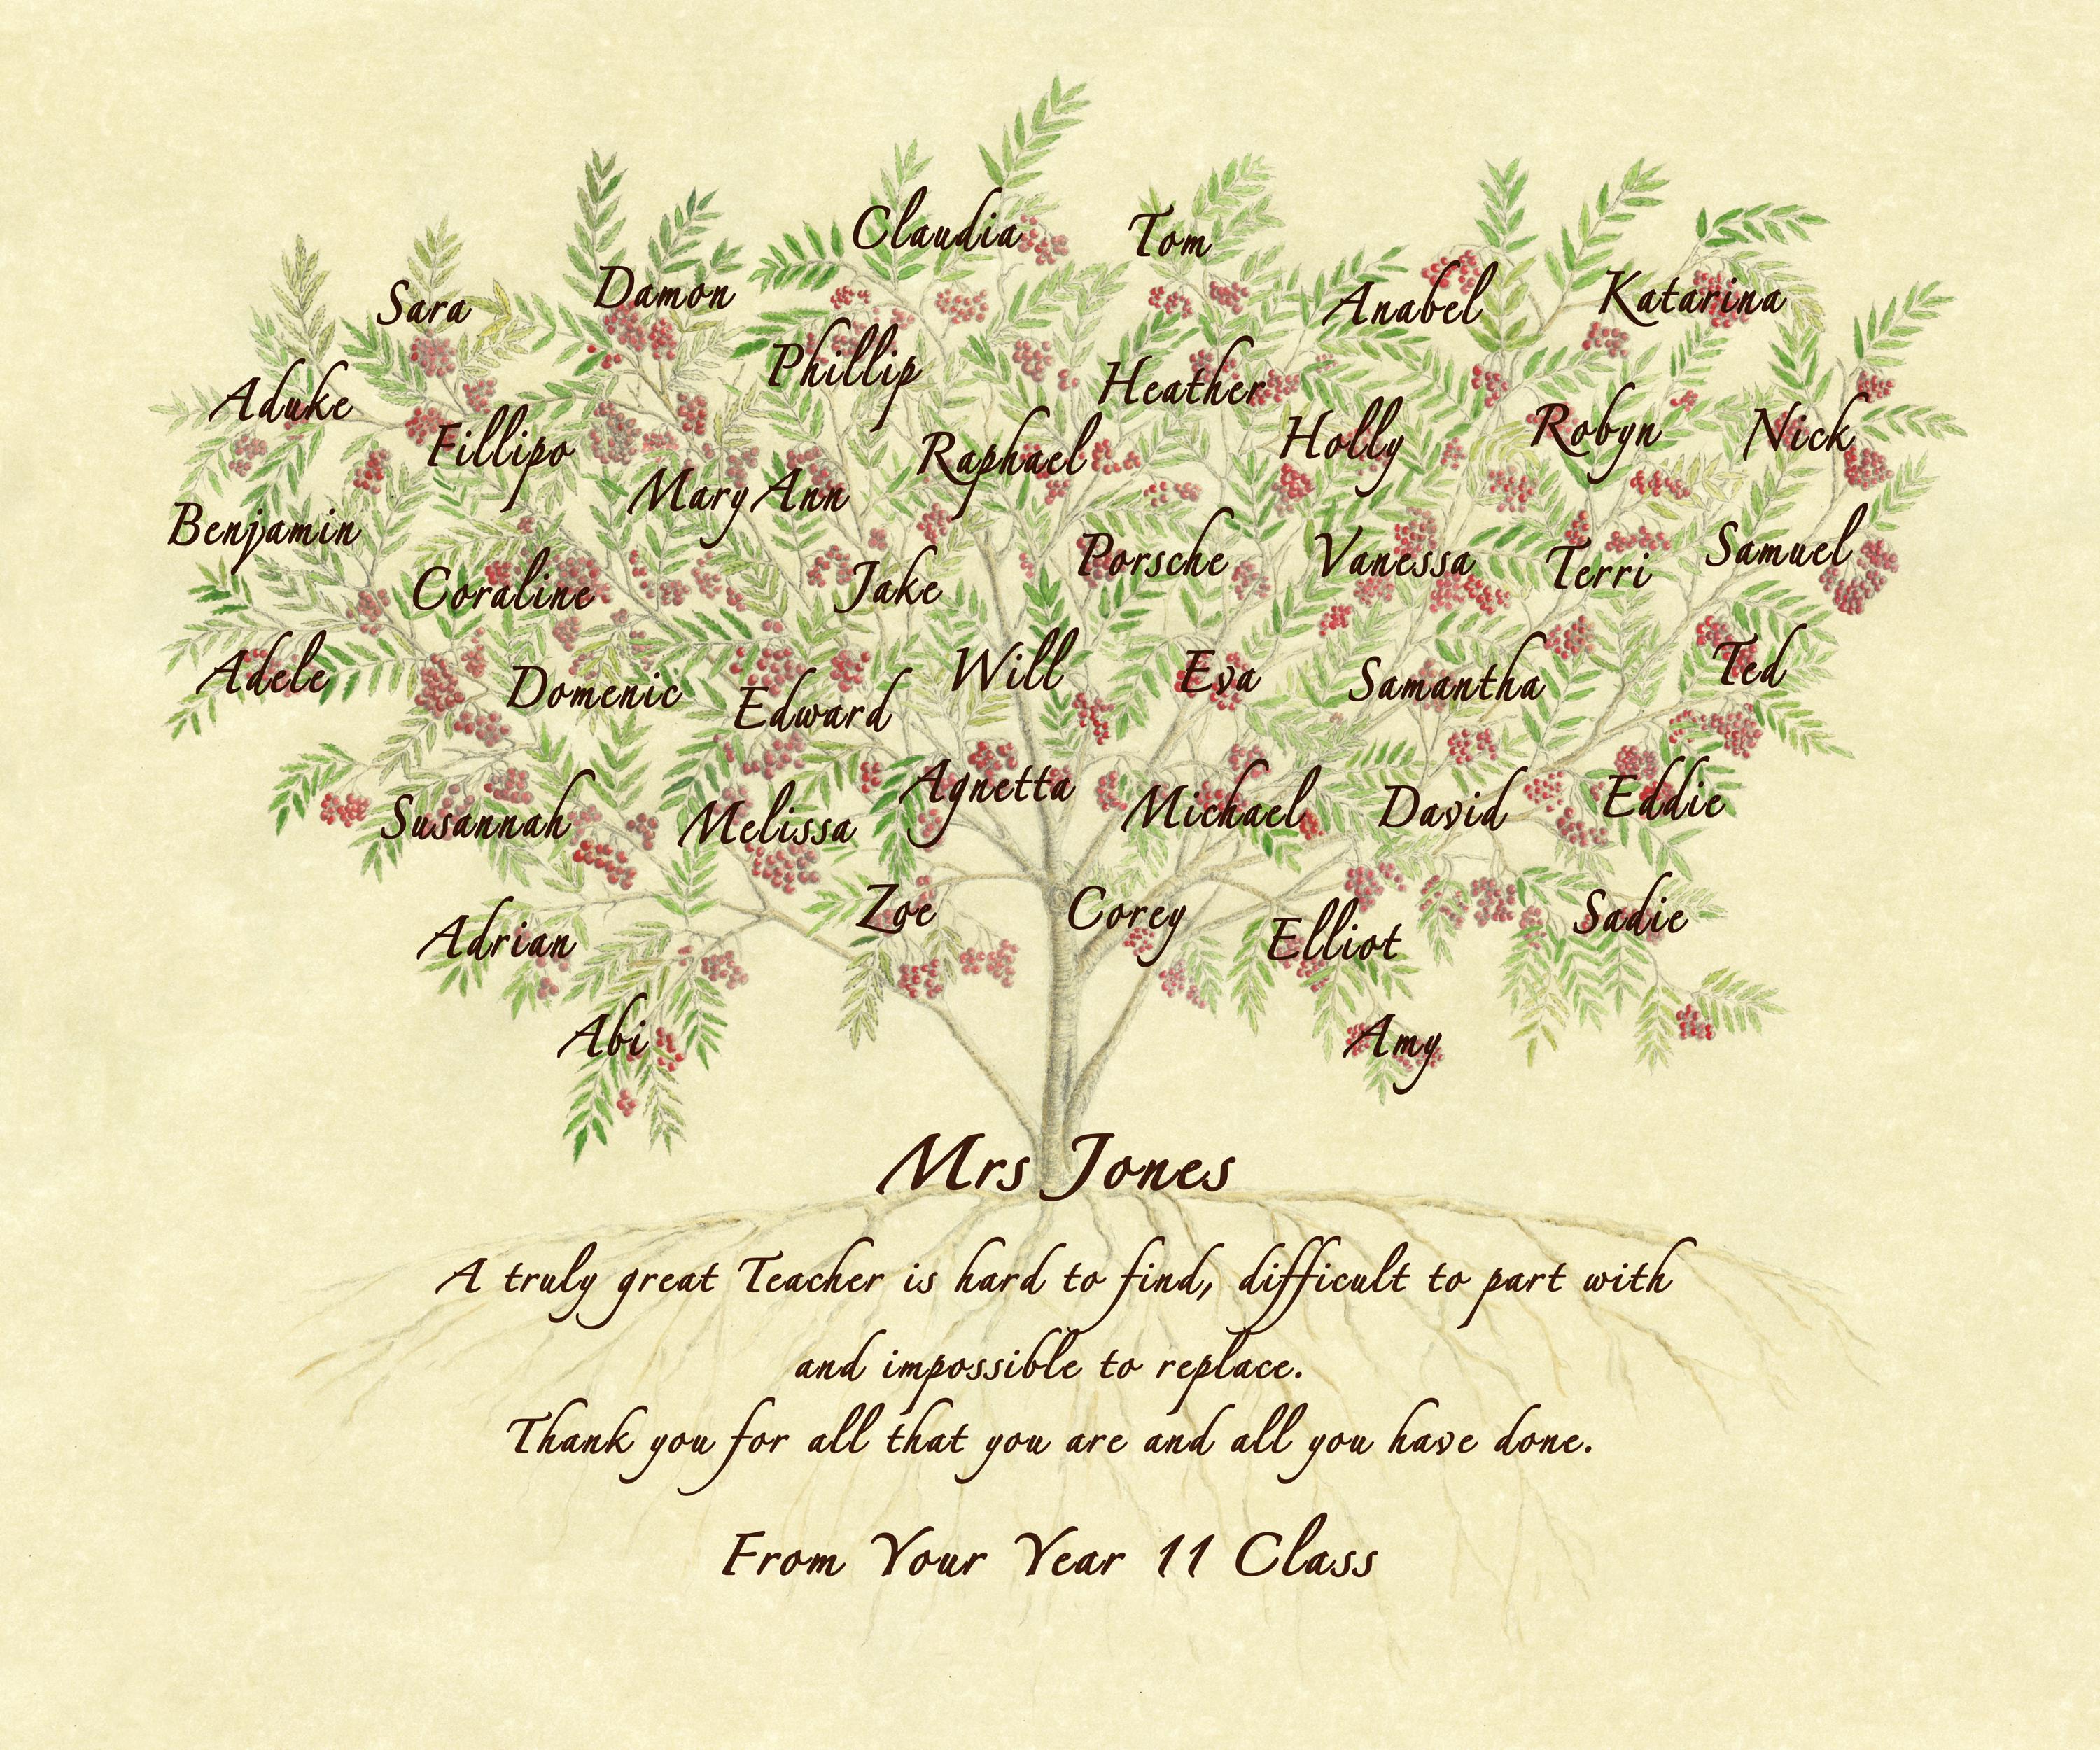 Claudia
Tom
Sara
Damon
Anabel
Katarina
Aduke
Phillip
Heather
Fillipo
Raphael
Holly
Robyn
Nick
Mary Ann
Benjamin
Coraline
Jake
Porsche
Vanessa
Terri
Samuel
Adele
Domenic
Edward
Will
Eva
Samantha
Ted
Susannah
Melissa
Agnetta
Michael
David
Eddie
Adrian
Zoe
Corey
Elliot
Sadie
Abi
Amy
Mrs Jones
A truly great Teacher is hard to find, difficult to part with
and impossible to replace.
Thank you for all that you are and all you have done.
From Your Year 11 Class